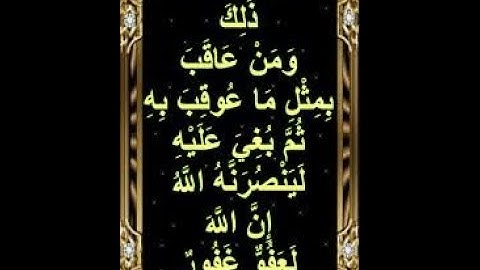 ذَلِكَ
وَمَنْ عَاقَبَ
بِمِثْلِ مَا عُوقِبَ بِهِ
ثُمَّ بُغِيَ عَلَيْهِ
لَيَنْصُرَنَّهُ اللَّهُ
إِنَّ اللَّهَ
لَعَفُوٌّ غَفُورٌ